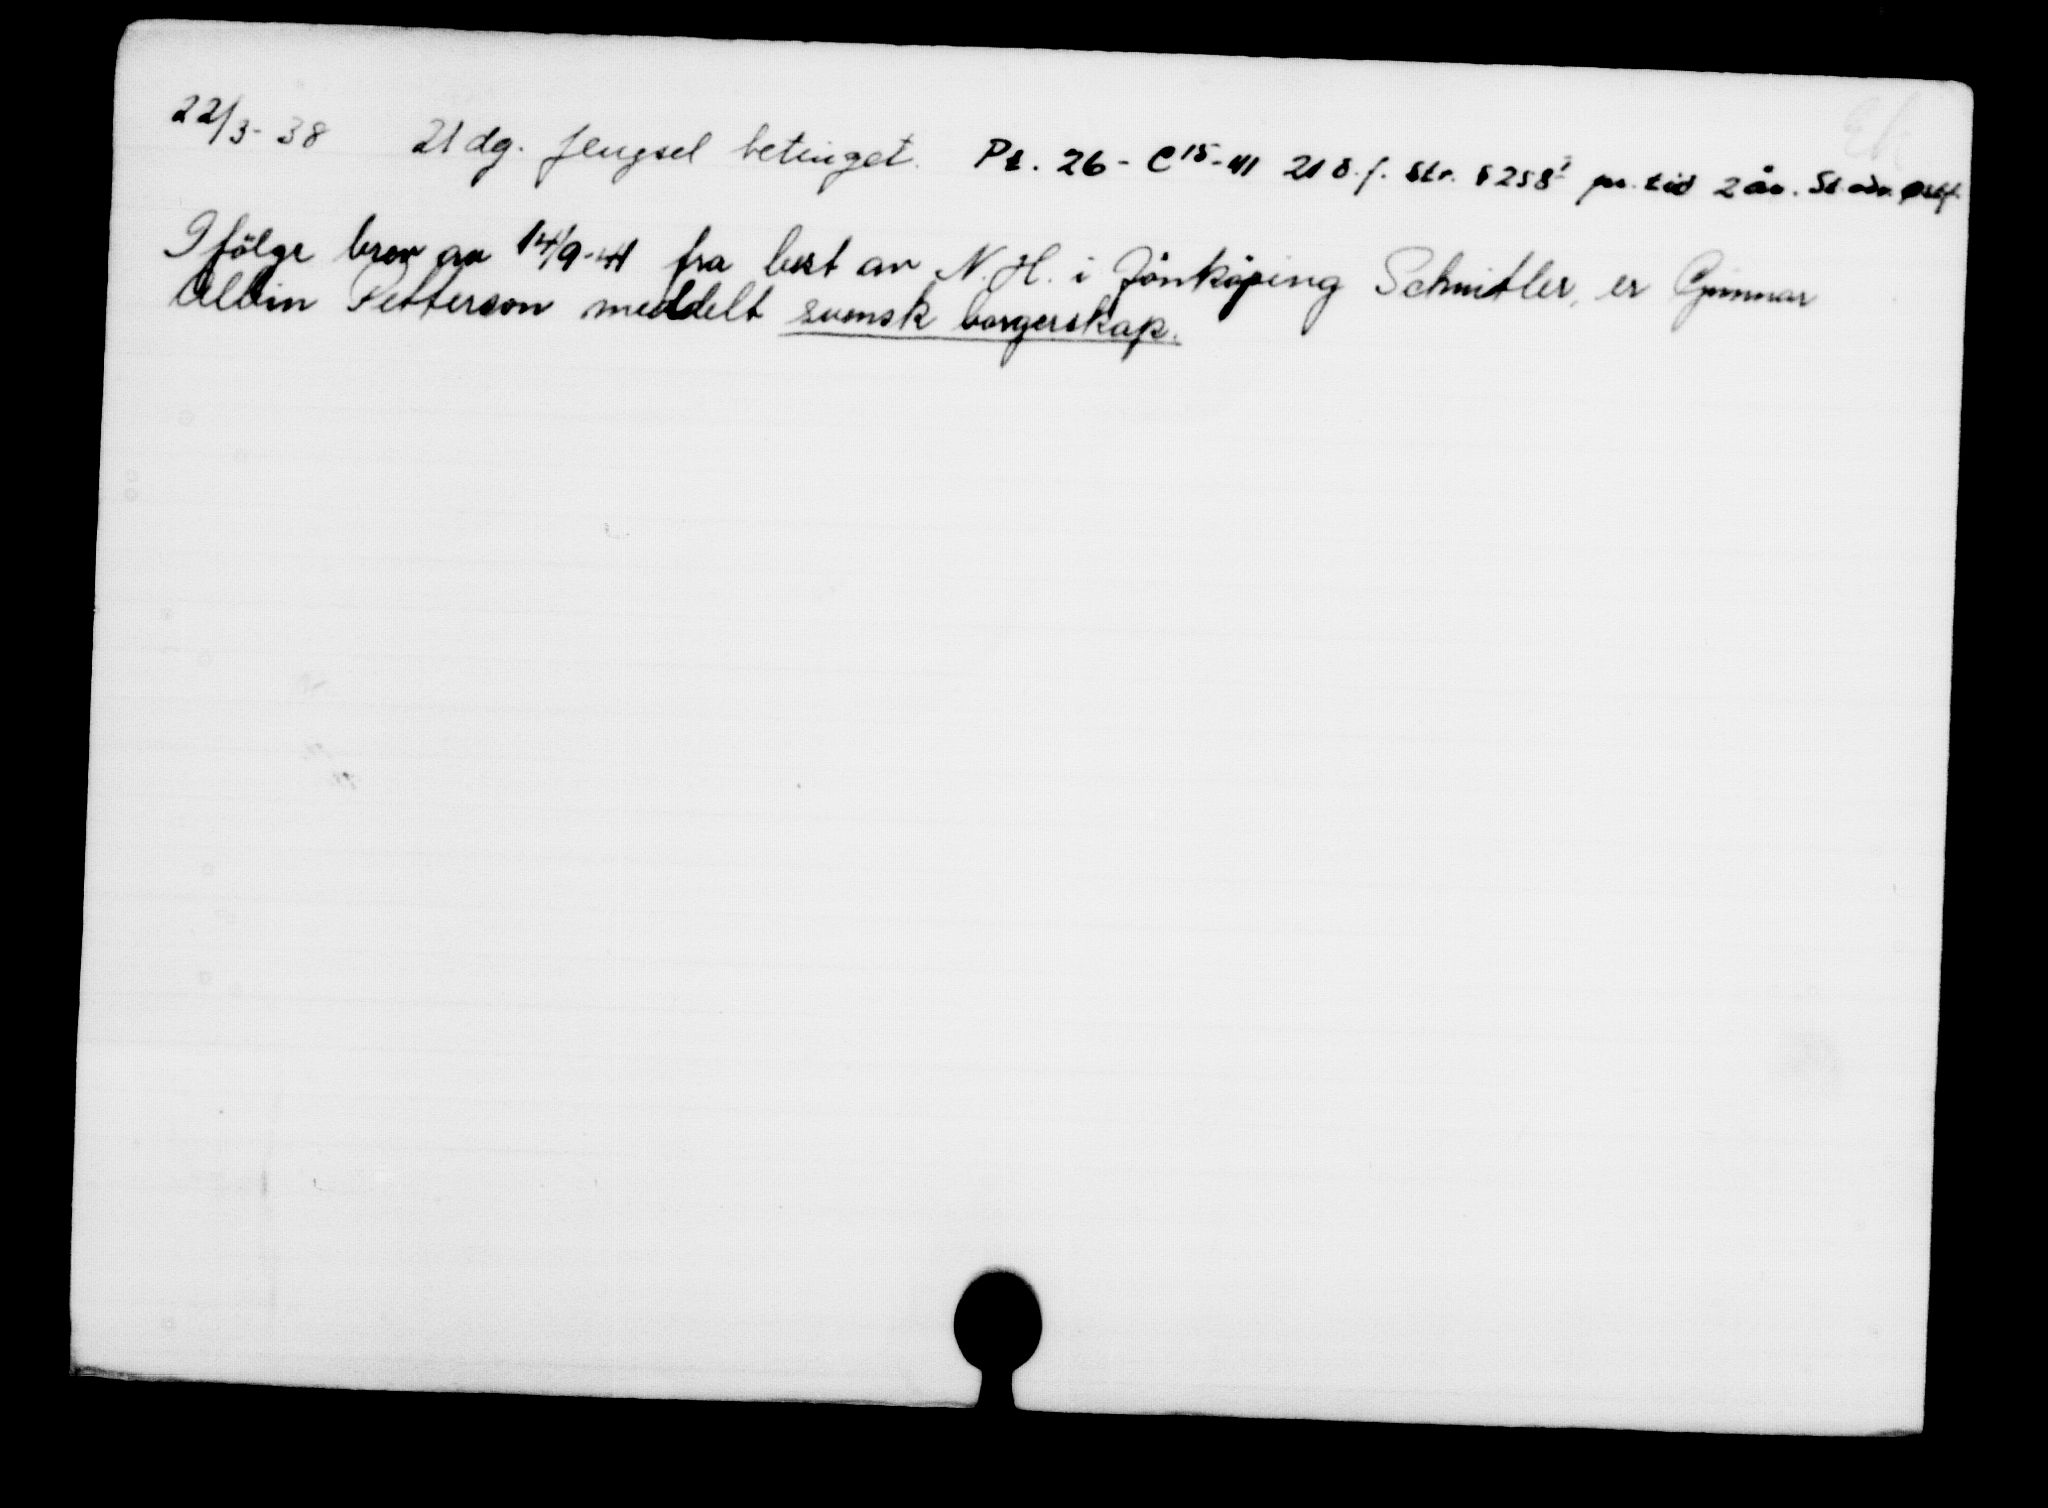 22/3-38 21 dg. fengsel betinget. Pt. 26 - C 15-41 21 d. f. Str. § 258¹ pr. tid 2 år. St. adv. Østf.
Ifölge brev av 14/9-41 fra best av N. H. i Jönköping Schnitler, er Gunnar
Albin Petterson meddelt svensk borgerskap.